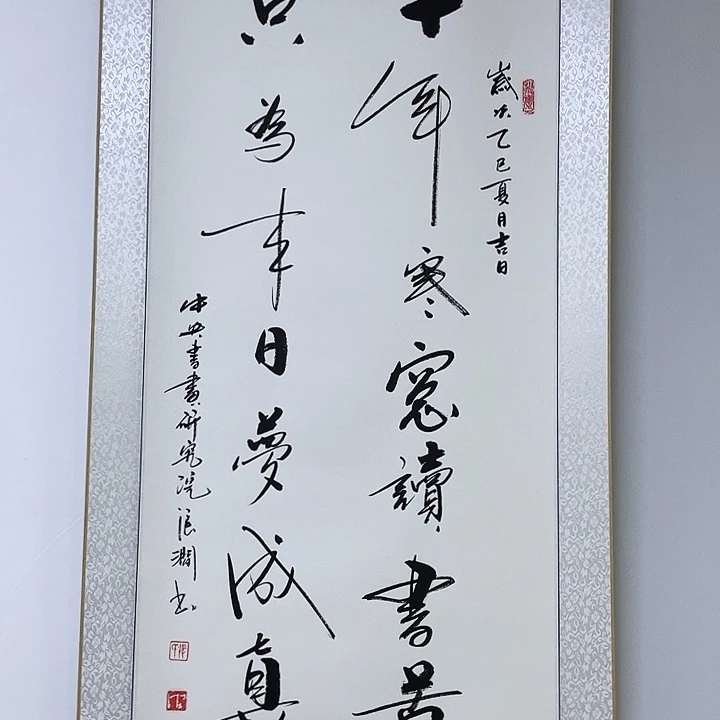 歲次乙巳夏月吉日
十年寒窓讀書苦
只為来日夢成真
中央書畫研究院浪澗书